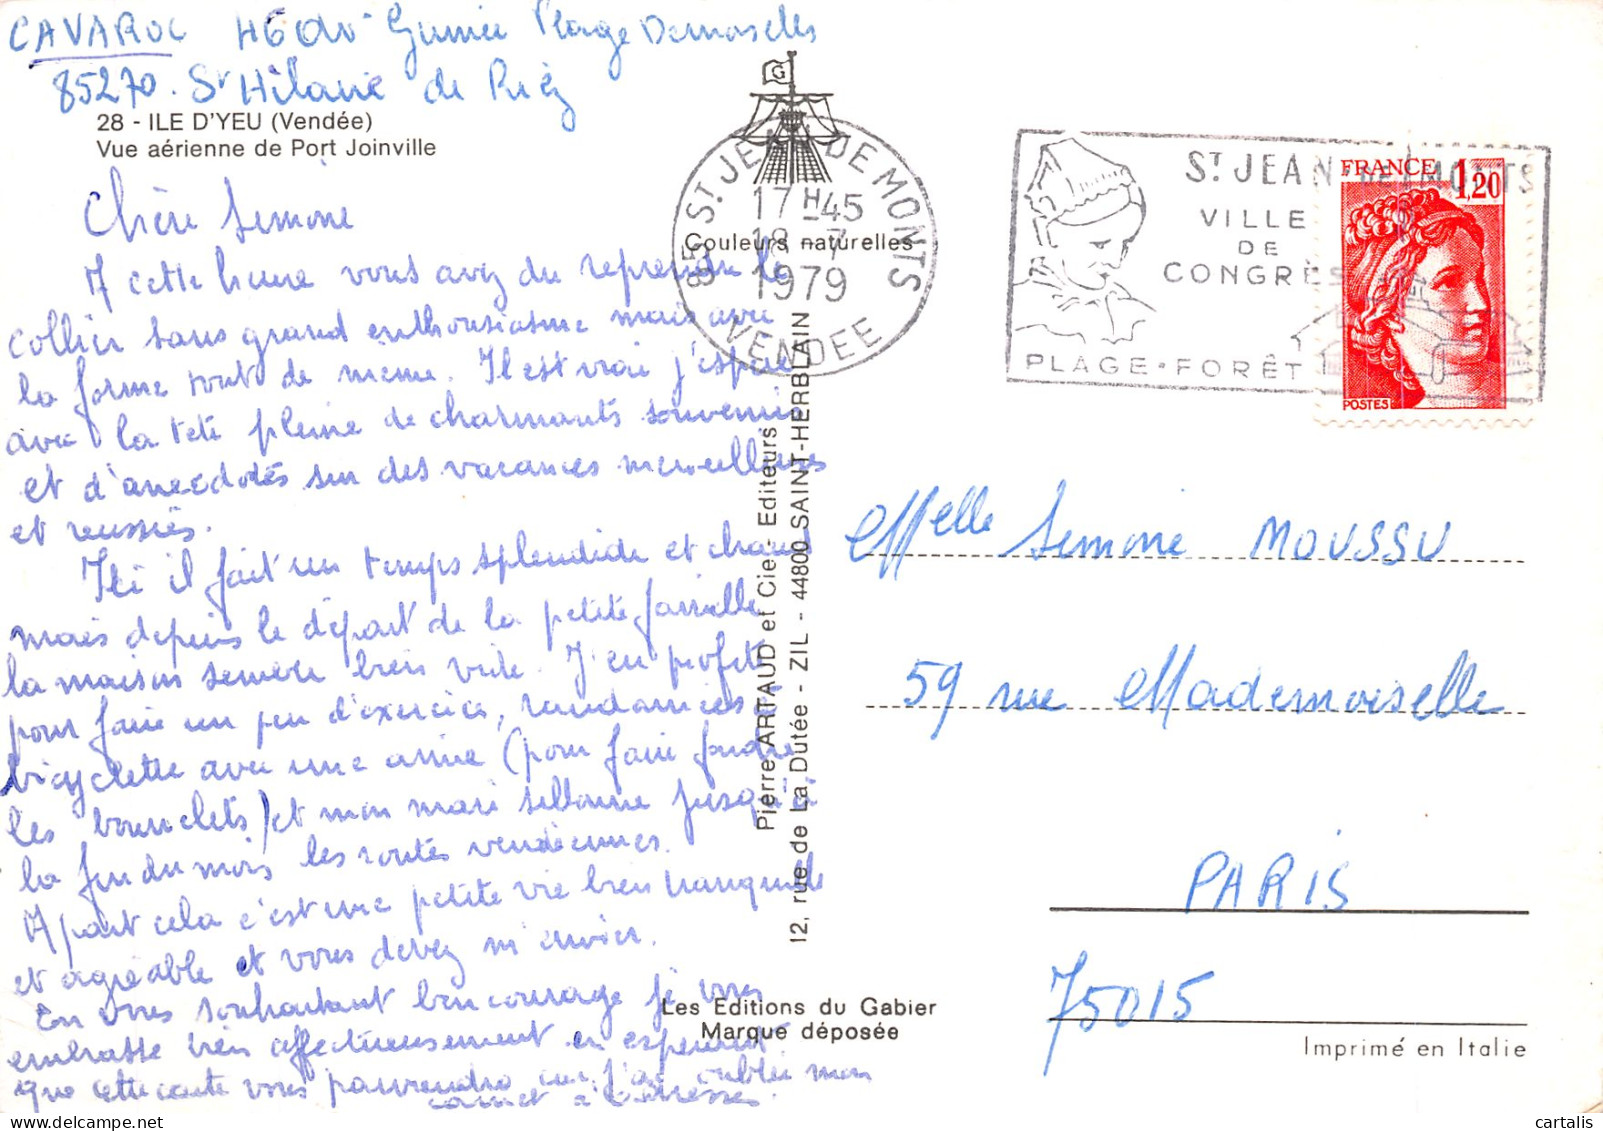 CAVAROC 46 Av Guinée Plage Demoiselles
85270. St Hilaire de Riez
28 - ILE D'YEU (Vendée)
Vue aérienne de Port Joinville
Chère Simone
A cette heure vous avez du reprendre le
collier sans grand enthousiasme mais avec
la forme tout de même. Il est vrai j'espère
avec la tête pleine de charmants souvenirs
et d'anecdotes sur des vacances merveilleuses
et reussies.
Ici il fait un temps splendide et chaud
mais depuis le départ de la petite famille
la maison semble bien vide. J'en profite
pour faire un peu d'exercice, randonnées à
bicyclette avec une amie (pour faire fondre
les bourrelets) et mon mari sillonne jusqu'à
la fin du mois les routes vendéennes.
A part cela c'est une petite vie bien tranquille
et agréable et vous devez m'envier.
En vous souhaitant bon courage je vous
embrasse bien affectueusement en espérant
que cette carte vous parviendra car j'ai oublié mon
carnet d'adresses.
G
85 ST JEAN DE MONTS
17 H 45
18 - 7
1979
VENDEE
Couleurs naturelles
Pierre ARTAUD et Cie - Editeurs
12, rue de La Dutée - ZIL - 44800 SAINT-HERBLAIN
Les Editions du Gabier
Marque déposée
ST JEAN DE MONTS
VILLE
DE
CONGRÈS
PLAGE • FORÊT
FRANCE 1,20
POSTES
Melle Simone MOUSSU
59 rue Mademoiselle
PARIS
75015
Imprimé en Italie
cartalis